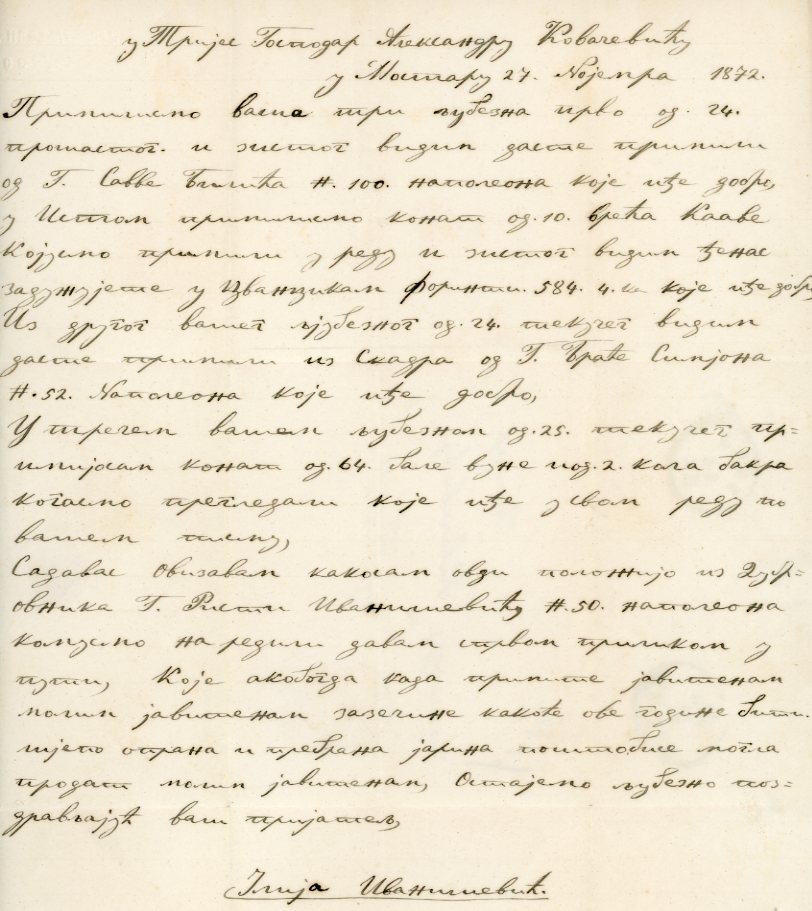 у Тријес Господар Александру Ковачевићу
у Мостару 27. Нојемра 1872.
Примимсмо ваша три љубезна прво од. 24.
прошастог. и зистог видим дасте примили
од Г. Савве Билића #. 100. наполеона које иђе добро,
у Истом примимсмо конат од. 10. врећа Кааве
Којусмо примили у реду и зистог видим ђенас
задужујете у Цванцикам форинти. 584. 4. ка које иђе добро
Из другог вашег љубезног од. 24. текућег видим
дасте примили из Скадра од Г. Браће Симјона
#. 52. Наполеона које иђе добро,
У трећем вашем љубезном од. 25. текућег пр=
имијосам конат од. 64. бале вуне и од. 2. кага бакра
когасмо прегледали које иђе у свом реду по
вашем писму,
Садавас Овизавам какосам овди положијо из Дубр=
овника Г. Ристи Иванишевићу #. 50. наполеона
комусмо наредили давам првом приликом у
пути, Које акобогда када примите јавитенам
молим јавитенам зазечине какоће ове године бити.
лијепо опрана и пребрана јарина поштобисе могла
продати молим јавитенам, Остајемо љубезно поз=
дрављајућ ваш пријатељ,
Илија Иванишевић.